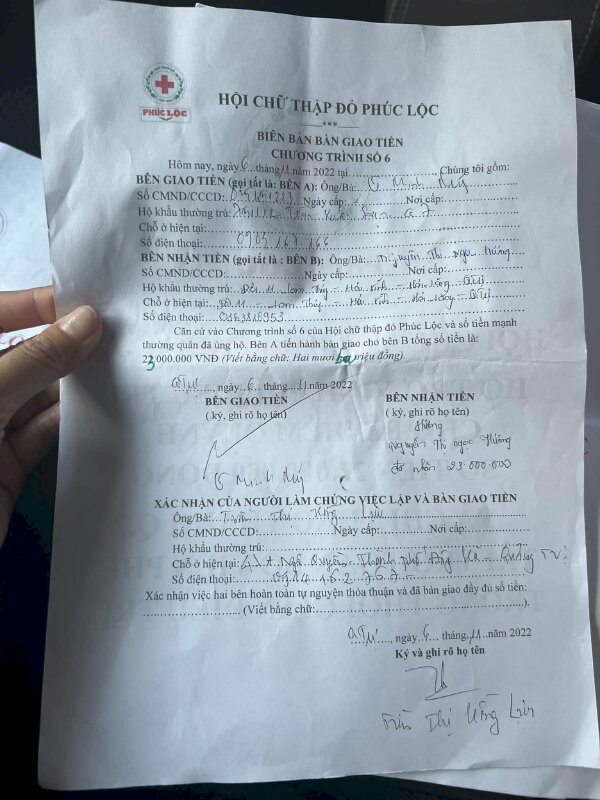 PHÚC LỘC
HỘI CHỮ THẬP ĐỎ PHÚC LỘC
***
BIÊN BẢN BÀN GIAO TIỀN
CHƯƠNG TRÌNH SỐ 6
Hôm nay, ngày 6 tháng 11 năm 2022 tại.................... Chúng tôi gồm:
BÊN GIAO TIỀN (gọi tắt là: BÊN A): Ông/Bà: Minh
Số CMND/CCCD: Ngày cấp: Nơi cấp:
Hộ khẩu thường trú:
Chỗ ở hiện tại:
Số điện thoại:
BÊN NHẬN TIỀN (gọi tắt là : BÊN B): Ông/Bà: Nguyễn Thị Ngọc Thương
Số CMND/CCCD: Ngày cấp: Nơi cấp:
Hộ khẩu thường trú: Đội 11 - Lam Thủy - Hải
Chỗ ở hiện tại: Đội 11 - Lam Thủy - Hải
Số điện thoại:
Căn cứ vào Chương trình số 6 của Hội chữ thập đỏ Phúc Lộc và số tiền mạnh
thường quân đã ủng hộ. Bên A tiến hành bàn giao cho bên B tổng số tiền là:
23.000.000 VNĐ (Viết bằng chữ: Hai mươi ba triệu đồng).
, ngày 6 tháng 11 năm 2022
BÊN GIAO TIỀN BÊN NHẬN TIỀN
( ký, ghi rõ họ tên) ( ký, ghi rõ họ tên)
Thương
Nguyễn Thị Ngọc Thương
Minh
đã nhận 23.000.000
XÁC NHẬN CỦA NGƯỜI LÀM CHỨNG VIỆC LẬP VÀ BÀN GIAO TIỀN
Ông/Bà: Trần Thị Hồng
Số CMND/CCCD: Ngày cấp: Nơi cấp:
Hộ khẩu thường trú:
Chỗ ở hiện tại: Ngô Quyền Thành phố Đông Hà Quảng Trị
Số điện thoại:
Xác nhận việc hai bên hoàn toàn tự nguyện thỏa thuận và đã bàn giao đầy đủ số tiền:
.................... (Viết bằng chữ:........................................).
, ngày 6 tháng 11 năm 2022
Ký và ghi rõ họ tên
Trần Thị Hồng